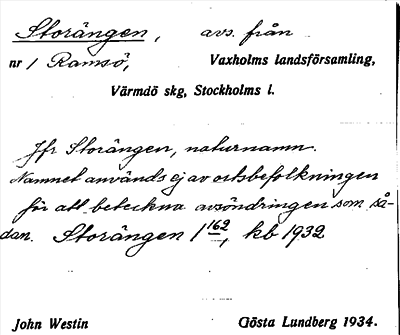 Storängen, avs. från
nr 1 Ramsö, Vaxholms landsförsamling,
Värmdö skg, Stockholms l.
Jfr Storängen, naturnamn.
Namnet används ej av ortsbefolkningen
för att beteckna avsöndringen som så-
dan. Storängen 1162, kb 1932
John Westin Gösta Lundberg 1934.